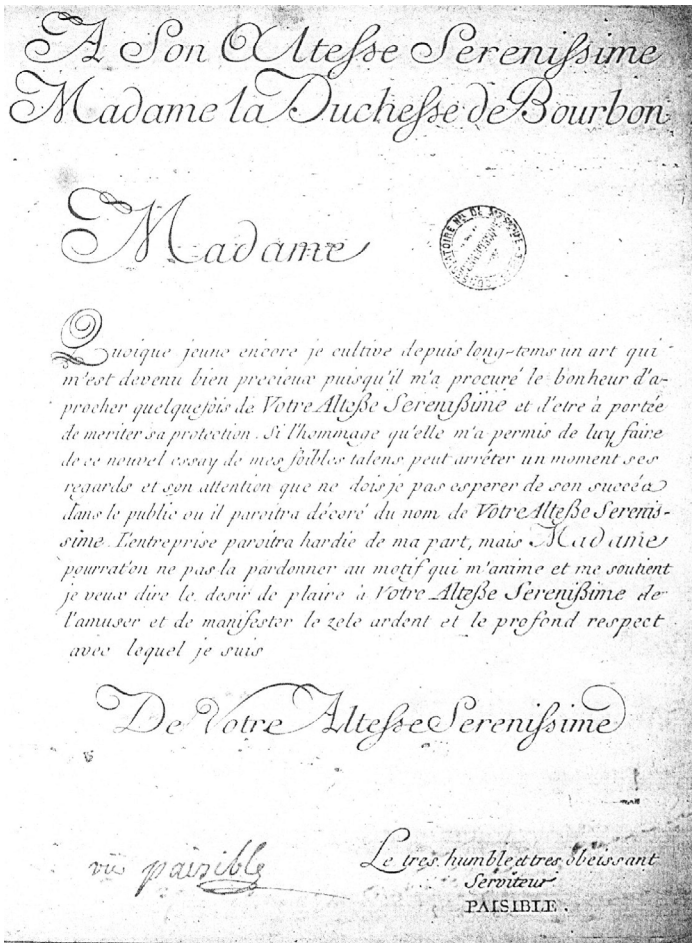 A Son Altesse Serenissime
Madame la Duchesse de Bourbon
Madame
Quoique jeune encore je cultive depuis long-tems un art qui
m'est devenu bien precieux puisqu'il m'a procuré le bonheur d'a-
procher quelquefois de Votre Altesse Serenissime et d'etre à portée
de meriter sa protection. Si l'hommage qu'elle m'a permis de luy faire
de ce nouvel essay de mes foibles talens peut arrêter un moment ses
regards et son attention que ne dois je pas esperer de son succéa
dans le public ou il paroitra décoré du nom de Votre Altesse Serenis-
sime. L'entreprise paroitra hardie de ma part, mais Madame
pourrat'on ne pas la pardonner au motif qui m'anime et me soutient
je veux dire le desir de plaire à Votre Altesse Serenissime de
l'amuser et de manifester le zele ardent et le profond respect
avec lequel je suis
De Votre Altesse Serenissime
paisible
Le tres humble et tres obeissant
Serviteur
PAISIBLE.